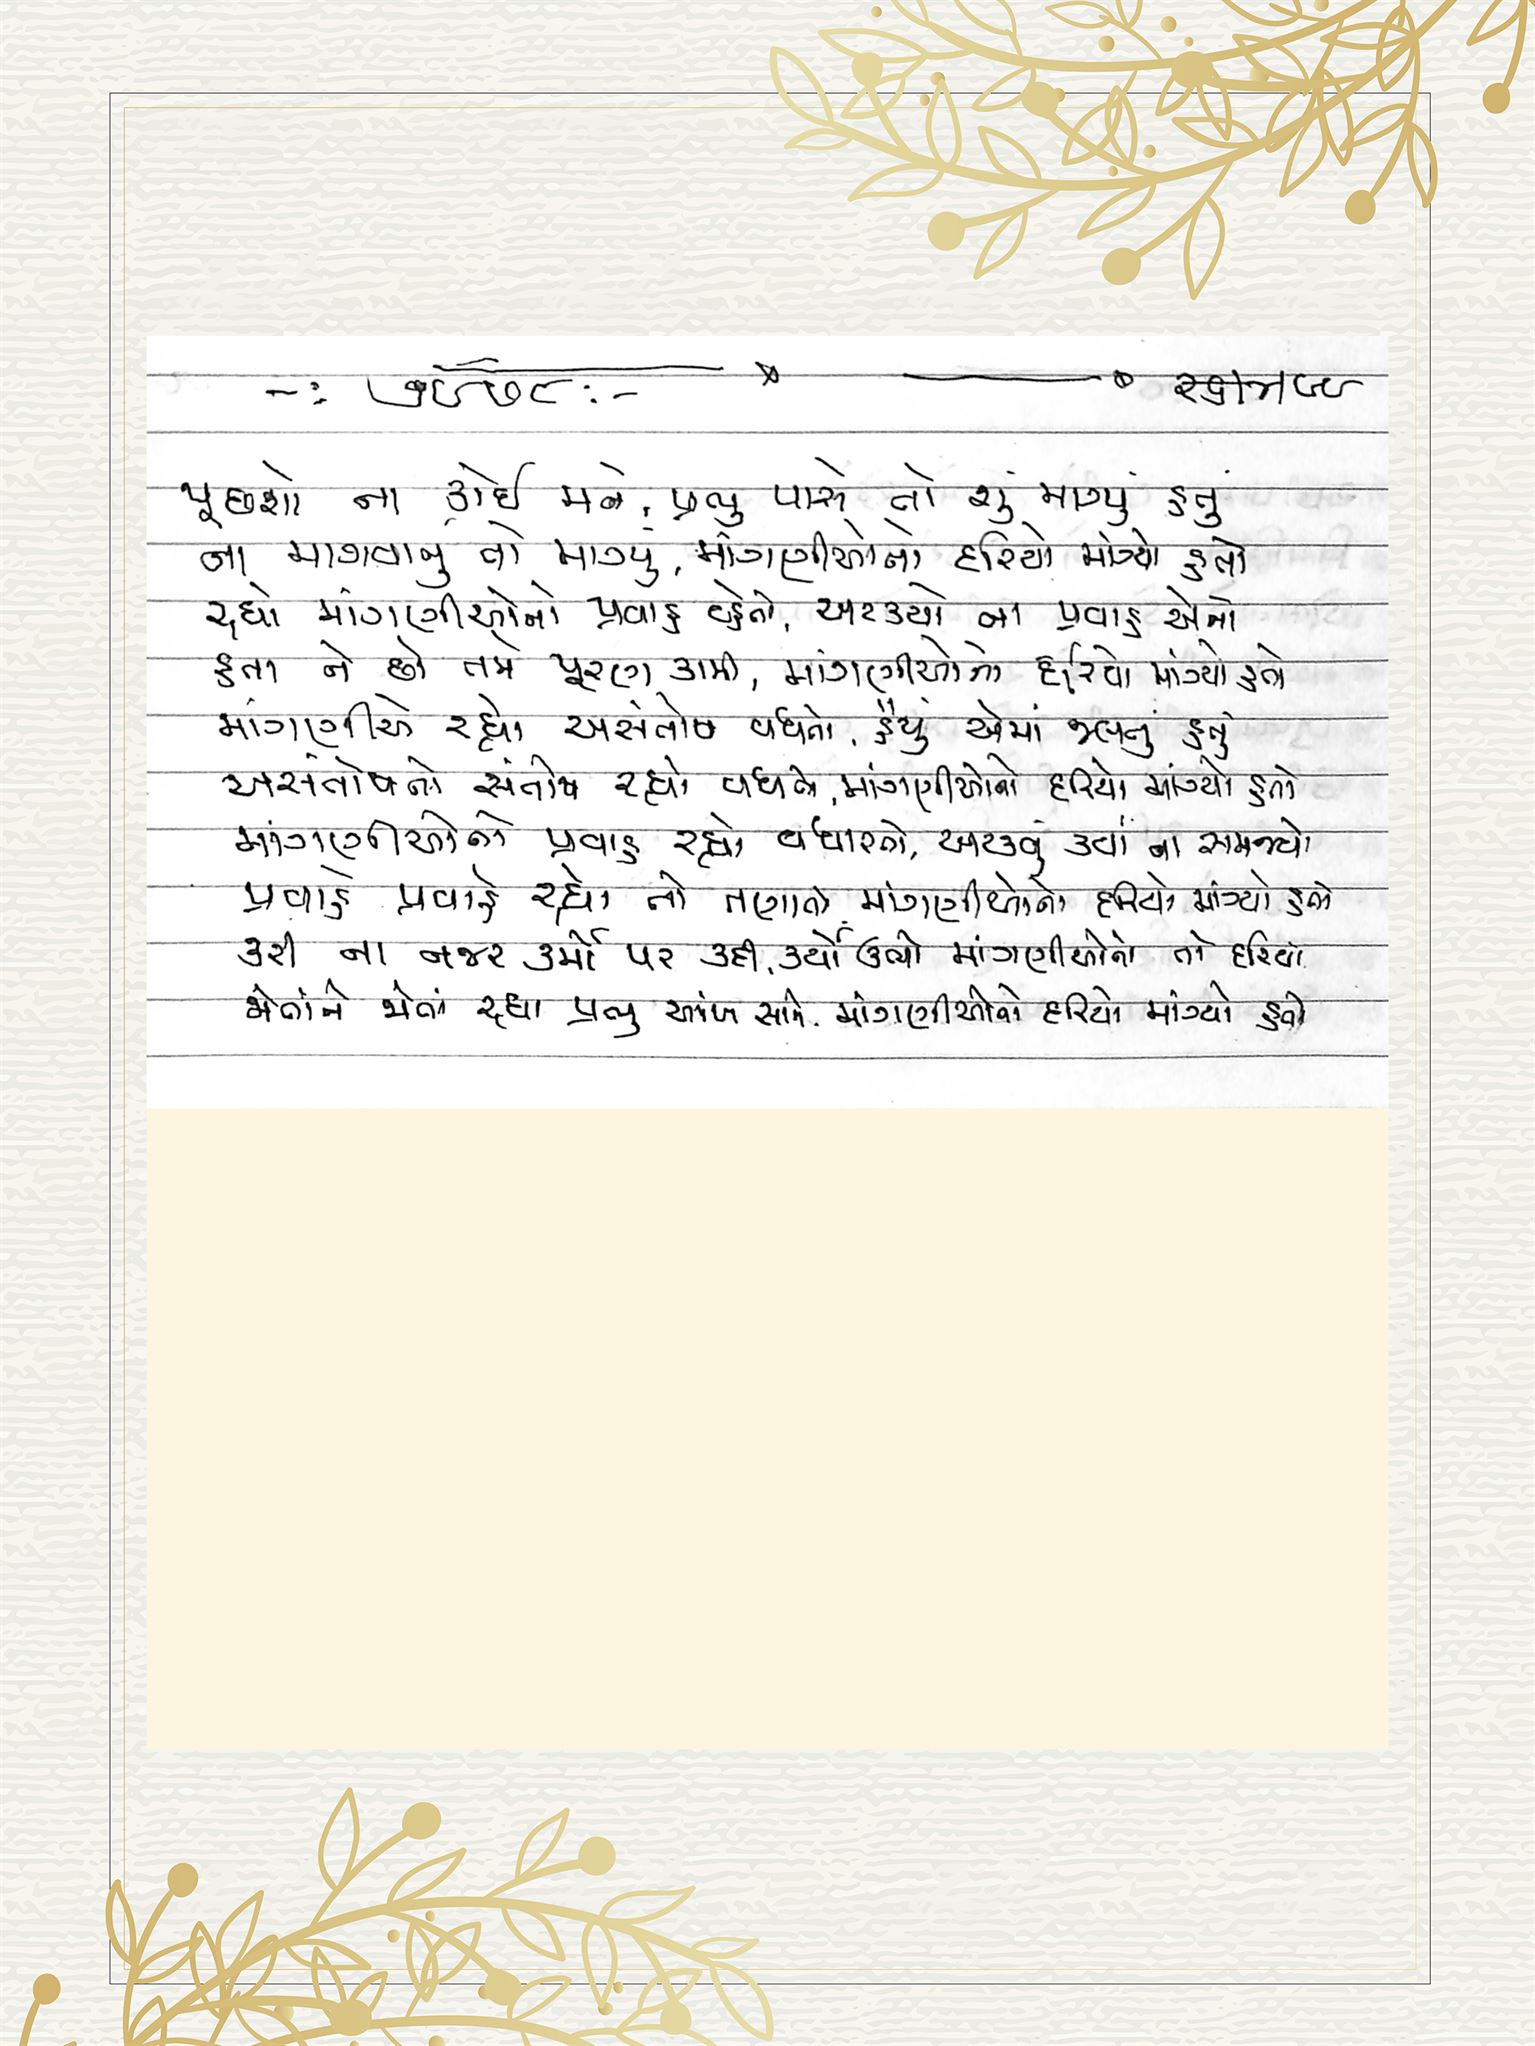 પૂછશો ના કોઈ મને, પ્રભુ પાસે તો શું માગ્યું હતું
ના માગવાનું તો માગ્યું, માંગણીઓનો દરિયો માંગ્યો હતો
રહ્યો માંગણીઓનો પ્રવાહ વહેતો, અટક્યો ના પ્રવાહ એનો
હતા ને છો તમે પૂરણ કામી, માંગણીઓનો દરિયો માંગ્યો હતો
માંગણીએ રહ્યો અસંતોષ વધતો, હૈયું એમાં જલતું હતું
અસંતોષનો સંતોષ રહ્યો વધતો, માંગણીઓનો દરિયો માંગ્યો હતો
માંગણીઓનો પ્રવાહ રહ્યો વધારતો, અટકવું ક્યાં ના સમજ્યો
પ્રવાહે પ્રવાહે રહ્યો તો તણાતો, માંગણીઓનો દરિયો માંગ્યો હતો
કરી ના નજર કર્મો પર કદી, કર્યો ઉભો માંગણીઓનો તો દરિયો
જોતાંને જોતાં રહ્યા પ્રભુ આંખ સામે, માંગણીઓનો દરિયો માંગ્યો હતો